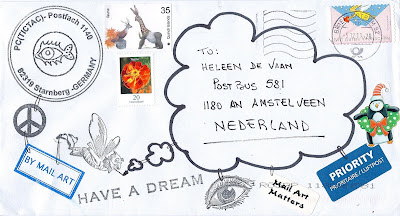 PC(TICTAC)- Postfach 1140
82319 Starnberg -GERMANY
35
20
TO:
HELEEN DE VAAN
POSTBUS 581
1180 AN AMSTELVEEN
NEDERLAND
BY MAIL ART
HAVE A DREAM
Mail Art
Matters
PRIORITY
PRIORITAIRE / LUFTPOST